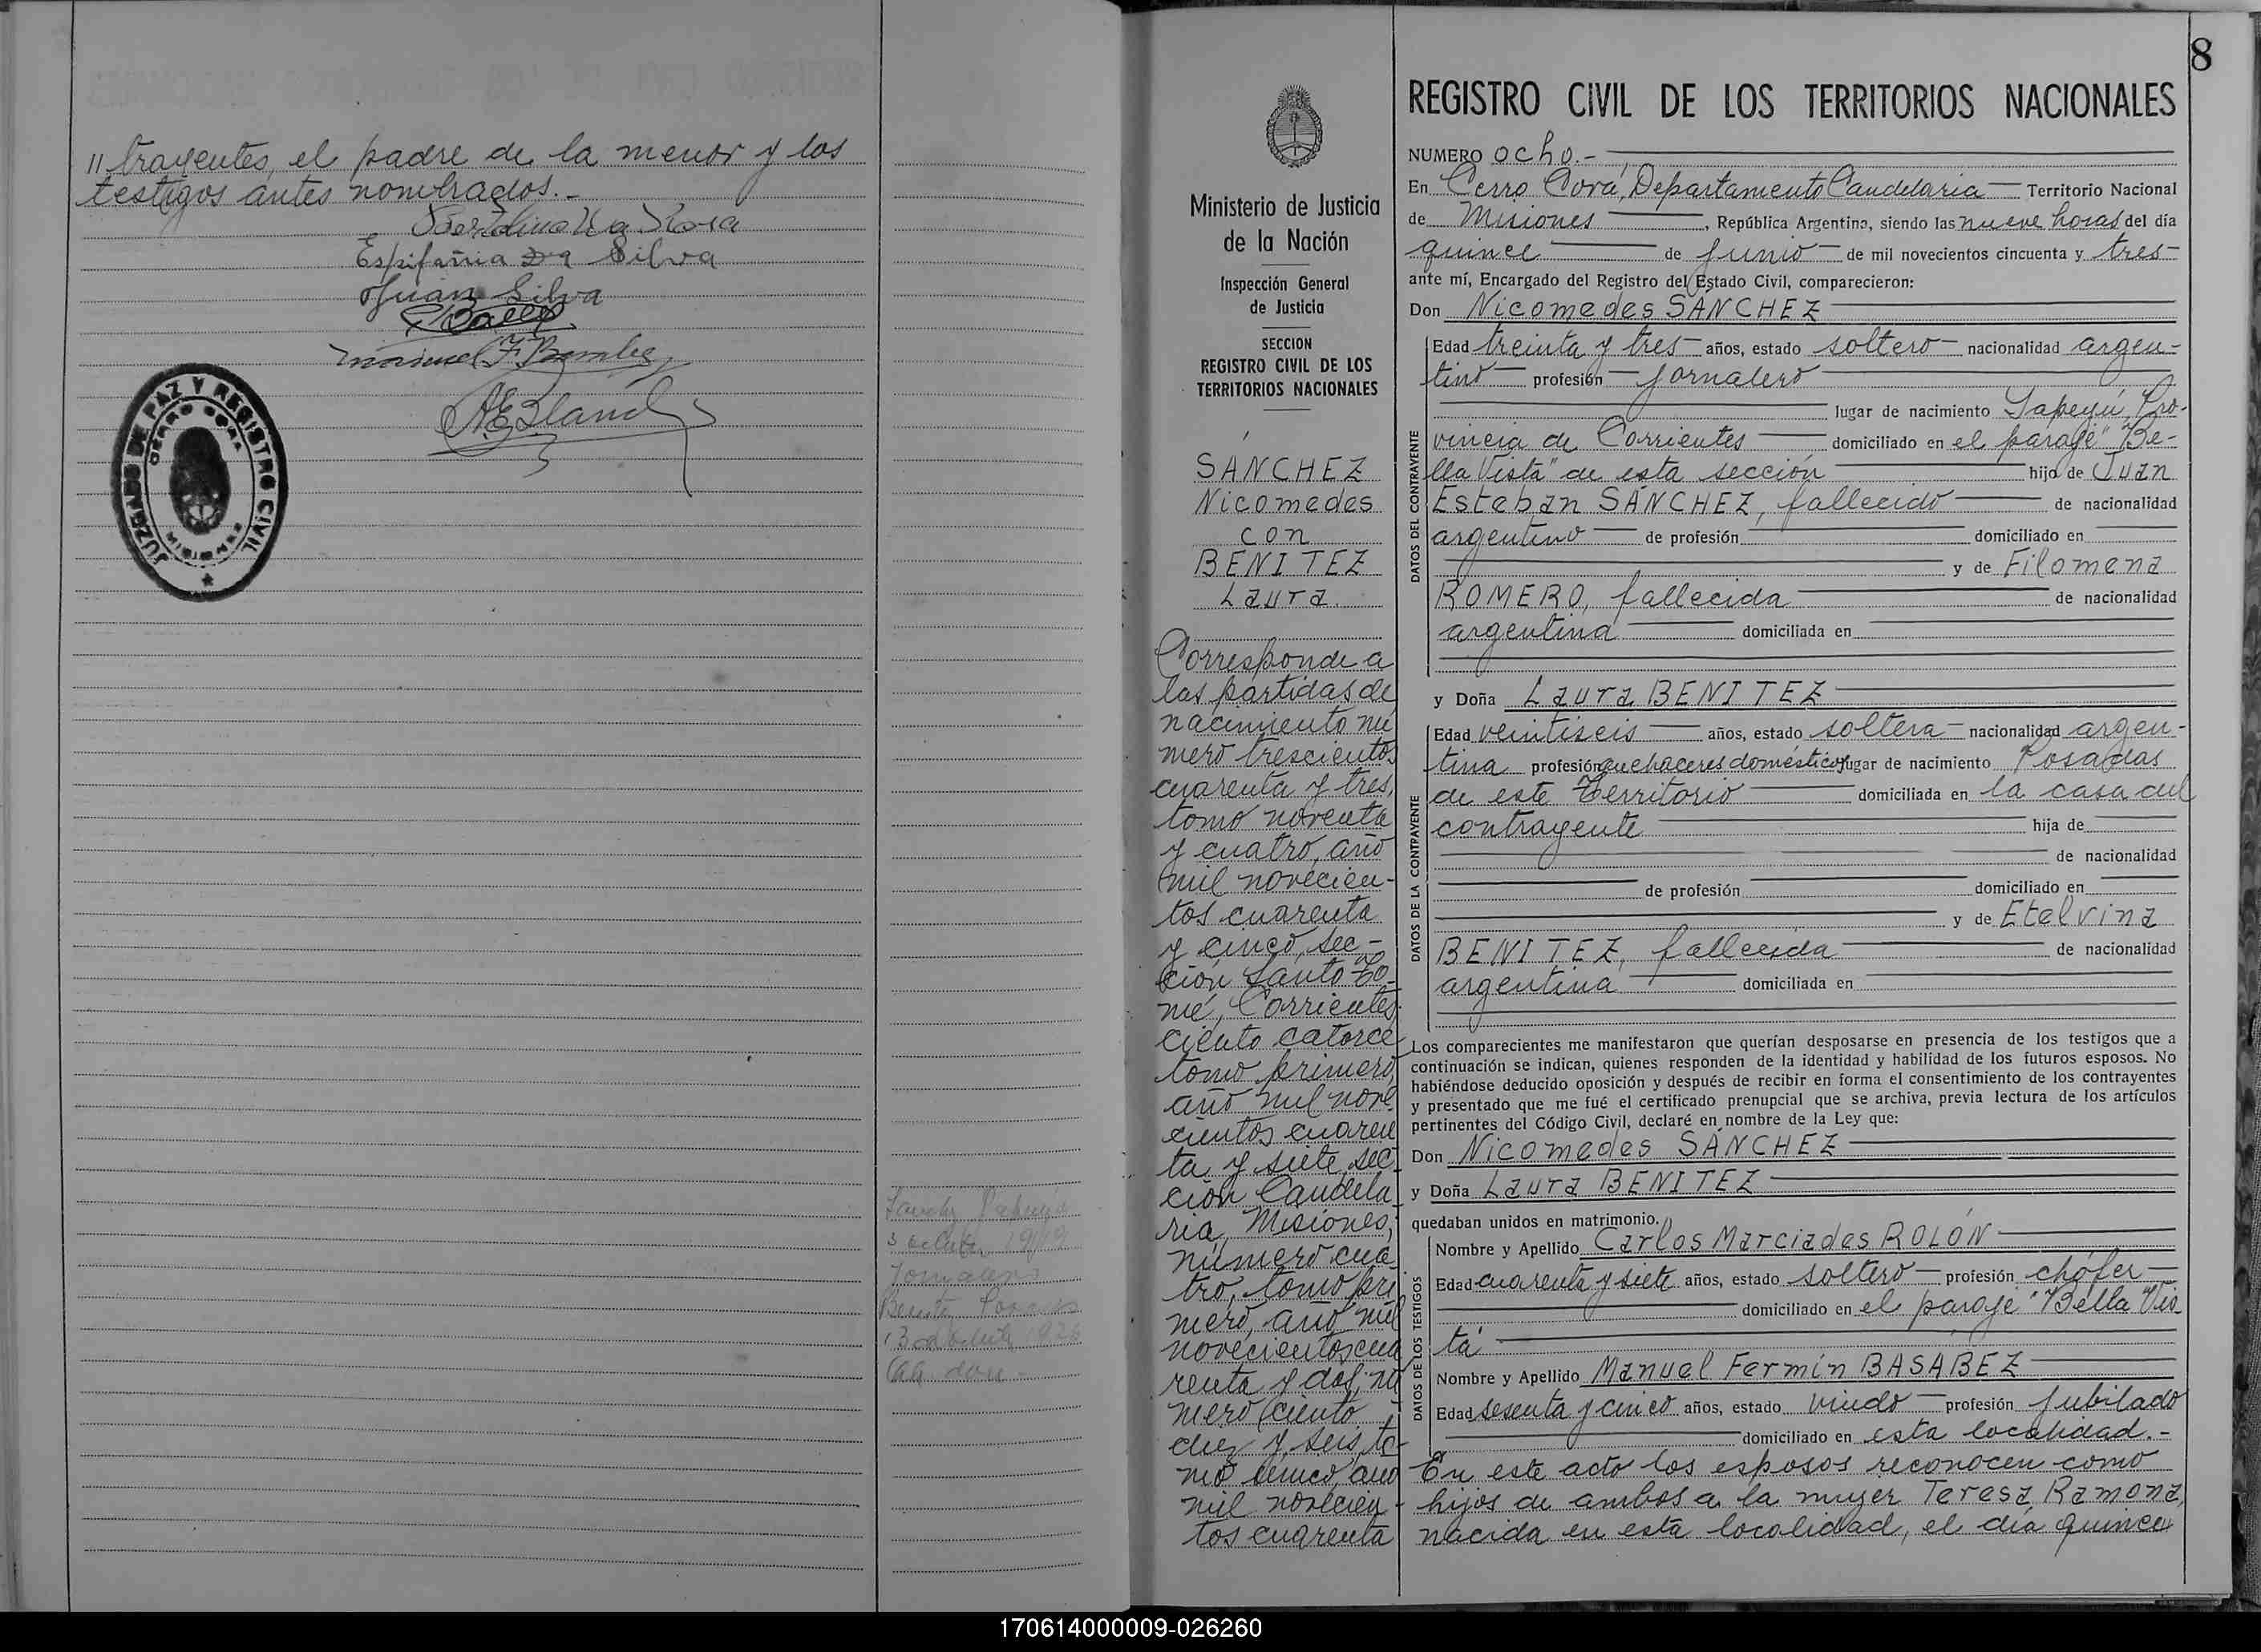 // trayentes, el padre de la menor y los
testigos antes nombrados.-
Juan Silva
JUZGADO DE PAZ Y REGISTRO CIVIL
CERRO CORÁ
8
Ministerio de Justicia
de la Nación
Inspección General
de Justicia
SECCION
REGISTRO CIVIL DE LOS
TERRITORIOS NACIONALES
SÁNCHEZ
Nicomedes
con
BENITEZ
Laura.
Corresponde a
las partidas de
nacimiento nú
mero trescientos
cuarenta y tres,
tomo noventa
y cuatro, año
mil novecien-
tos cuarenta
y cinco, sec-
ción Santo To-
mé, Corrientes,
ciento catorce
tomo primero
año mil nove
cientos cuaren
ta y siete, sec
ción Candela
ria, Misiones;
número cua
tro, tomo pri
mero, año mil
novecientos cua
renta y dos, nú
mero ciento
diez y seis, to-
mo cinco, año
mil novecien-
tos cuarenta
REGISTRO CIVIL DE LOS TERRITORIOS NACIONALES
NUMERO ocho.-
En Cerro Corá, Departamento Candelaria Territorio Nacional
de Misiones, República Argentina, siendo las nueve horas del día
quince de Junio de mil novecientos cincuenta y tres
ante mí, Encargado del Registro del Estado Civil, comparecieron:
Don Nicomedes SÁNCHEZ
DATOS DEL CONTRAYENTE
Edad treinta y tres años, estado soltero nacionalidad argen-
tino profesión Jornalero
lugar de nacimiento Yapeyú, Pro-
vincia de Corrientes domiciliado en el paraje "Be-
lla Vista" de esta sección hijo de Juan
Esteban SÁNCHEZ, fallecido de nacionalidad
argentino de profesión domiciliado en
y de Filomena
ROMERO, fallecida de nacionalidad
argentina domiciliada en
y Doña Laura BENITEZ
DATOS DE LA CONTRAYENTE
Edad veintiseis años, estado soltera nacionalidad argen-
tina profesión quehaceres domésticos lugar de nacimiento Posadas
de este Territorio domiciliada en la casa del
contrayente hija de
de nacionalidad
de profesión domiciliado en
y de Etelvina
BENITEZ, fallecida de nacionalidad
argentina domiciliada en
Los comparecientes me manifestaron que querían desposarse en presencia de los testigos que a
continuación se indican, quienes responden de la identidad y habilidad de los futuros esposos. No
habiéndose deducido oposición y después de recibir en forma el consentimiento de los contrayentes
y presentado que me fué el certificado prenupcial que se archiva, previa lectura de los artículos
pertinentes del Código Civil, declaré en nombre de la Ley que:
Don Nicomedes SÁNCHEZ
y Doña Laura BENITEZ
quedaban unidos en matrimonio.
DATOS DE LOS TESTIGOS
Nombre y Apellido Carlos Marciades ROLÓN
Edad cuarenta y siete años, estado soltero profesión chófer
domiciliado en el paraje "Bella Vis
ta"
Nombre y Apellido Manuel Fermín BASABEZ
Edad sesenta y cinco años, estado viudo profesión Jubilado
domiciliado en esta localidad.-
En este acto los esposos reconocen como
hijos de ambos a la mujer Teresa Ramona,
nacida en esta localidad, el día quince
170614000009-026260